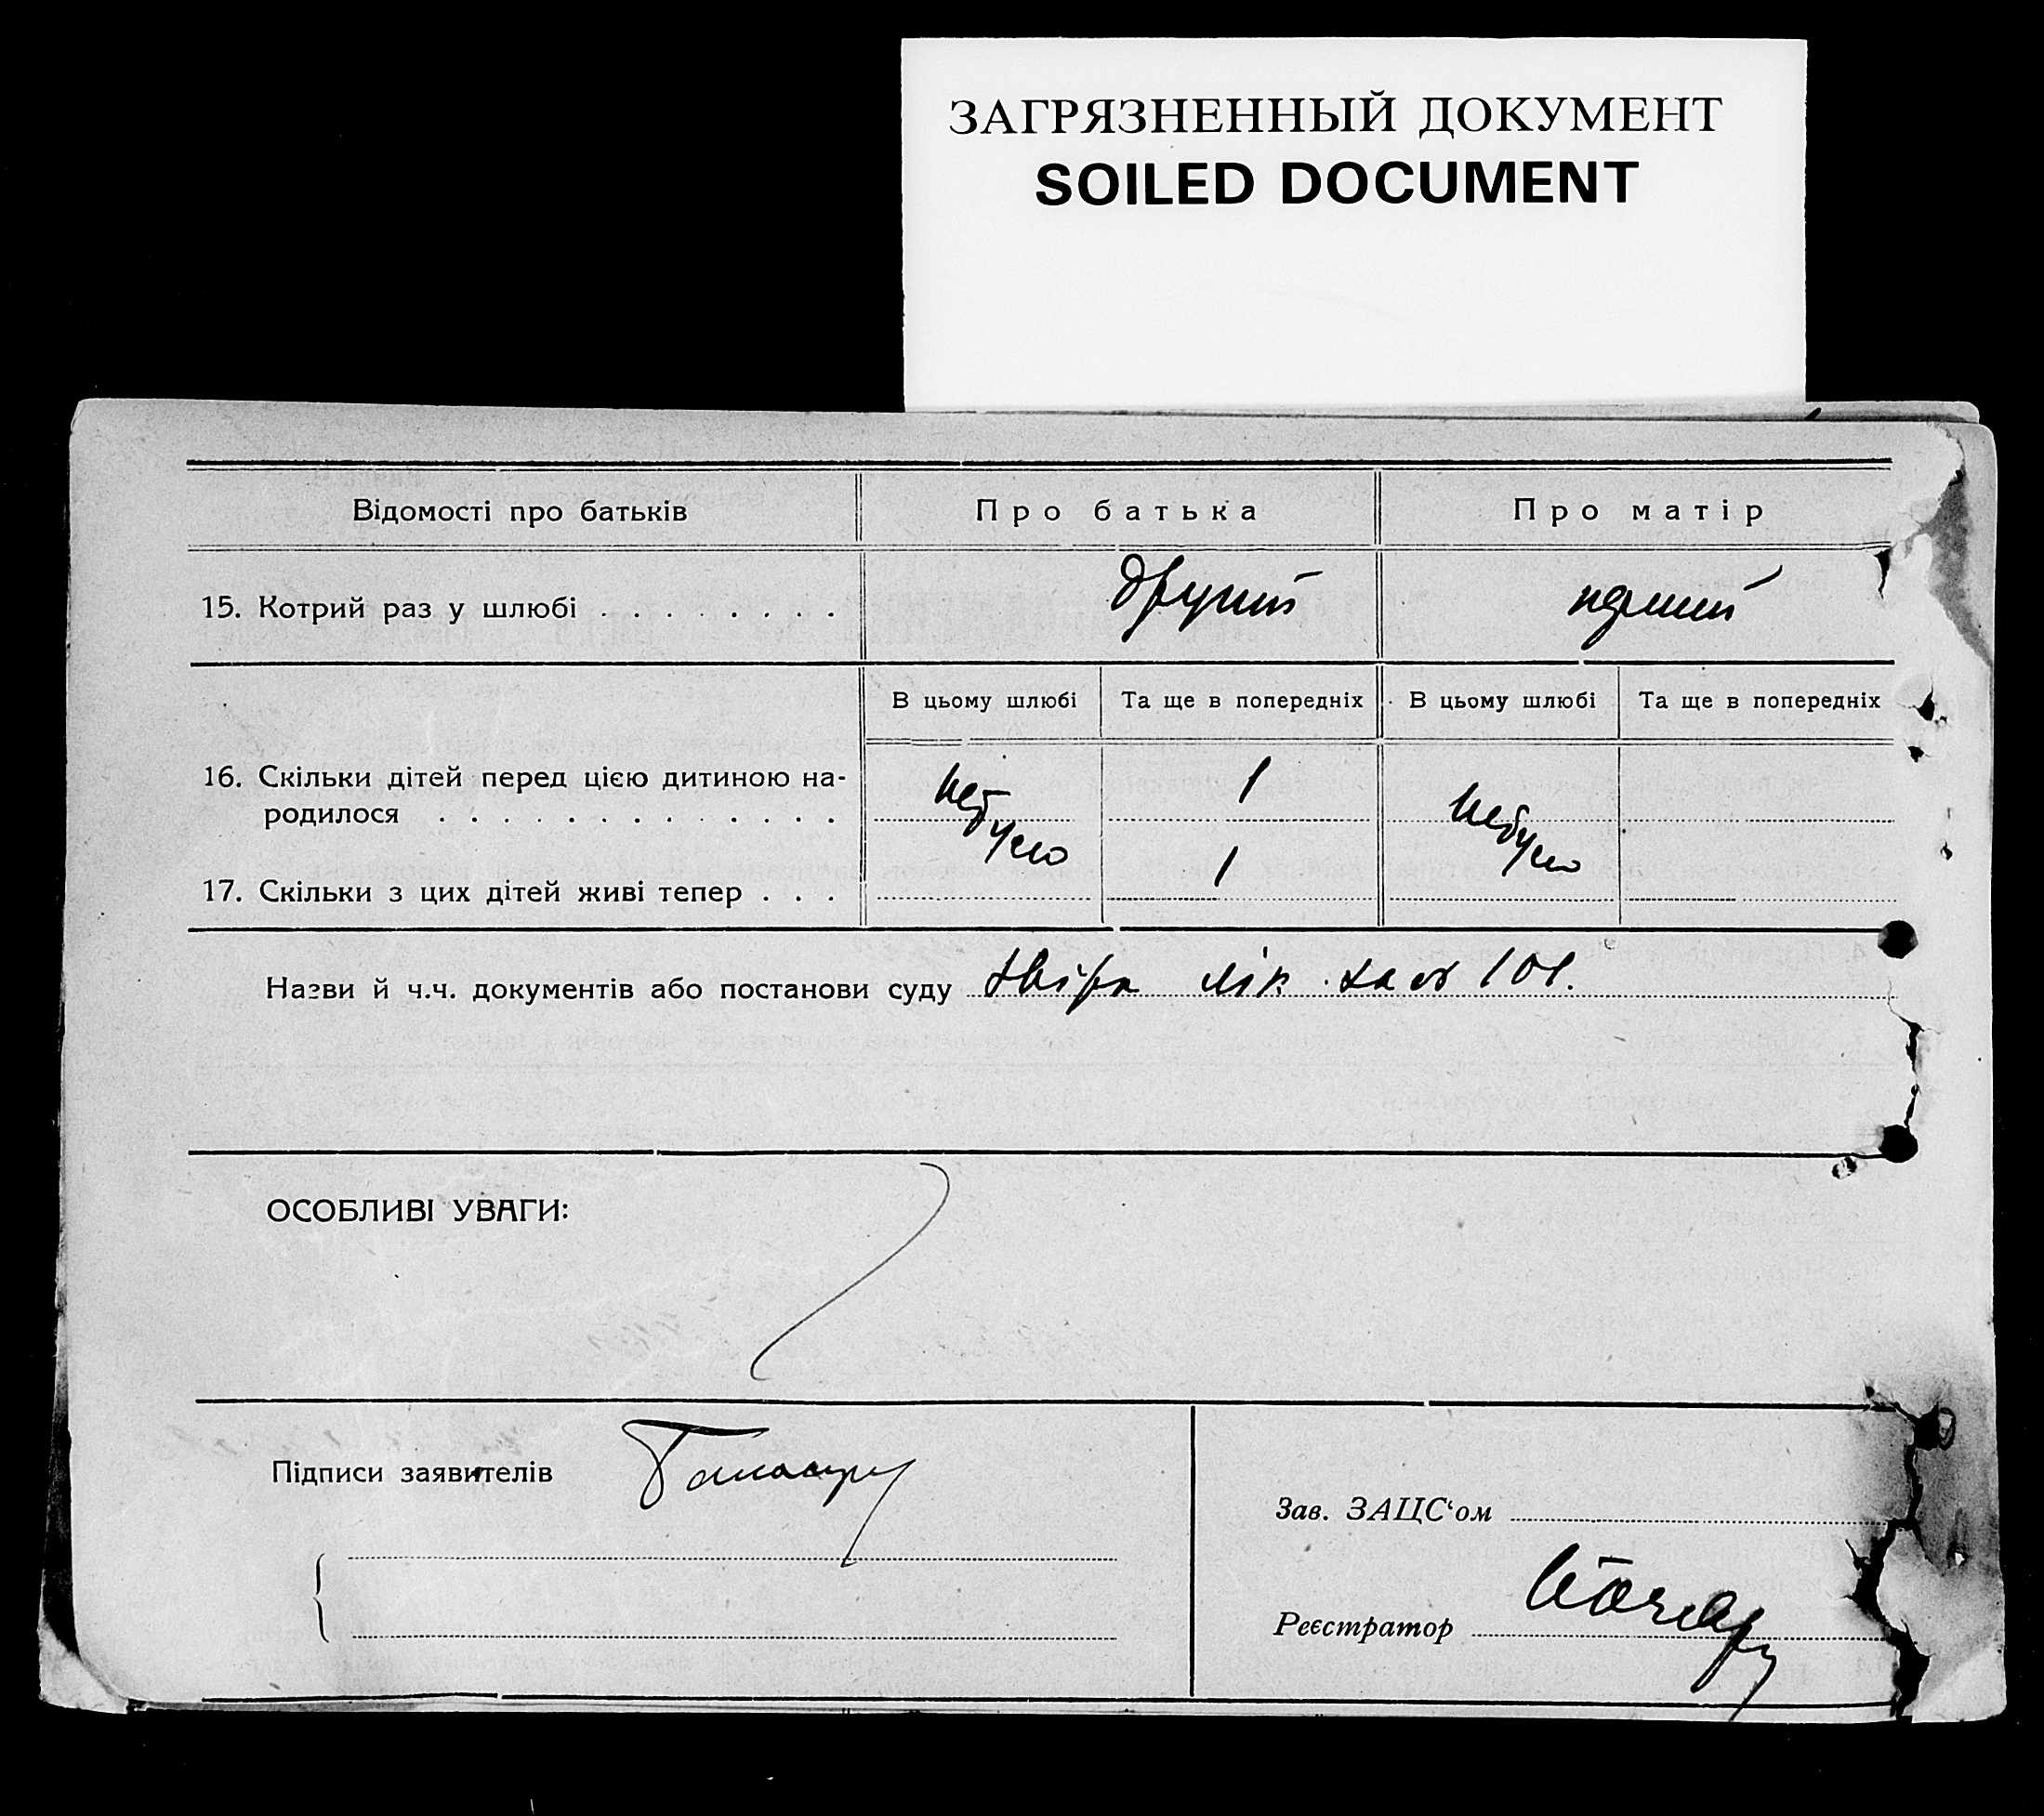 ЗАГРЯЗНЕННЫЙ ДОКУМЕНТ
SOILED DOCUMENT
Відомості про батьків Про батька Про матір
15. Котрий раз у шлюбі . . . . . . . . другий перший
В цьому шлюбі Та ще в попередніх В цьому шлюбі Та ще в попередніх
16. Скільки дітей перед цією дитиною на-
родилося . . . . . . . . . . . . . . не було 1 не було
17. Скільки з цих дітей живі тепер . . . 1
Назви й ч.ч. документів або постанови суду лік 101.
ОСОБЛИВІ УВАГИ:
Підписи заявителів
Зав. ЗАЦС‘ом
Реєстратор